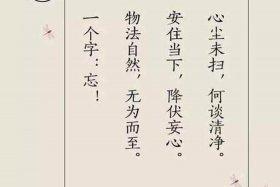 心尘未扫，何谈清净。
安住当下，降伏妄心。
物法自然，无为而至。
一个字：忘！